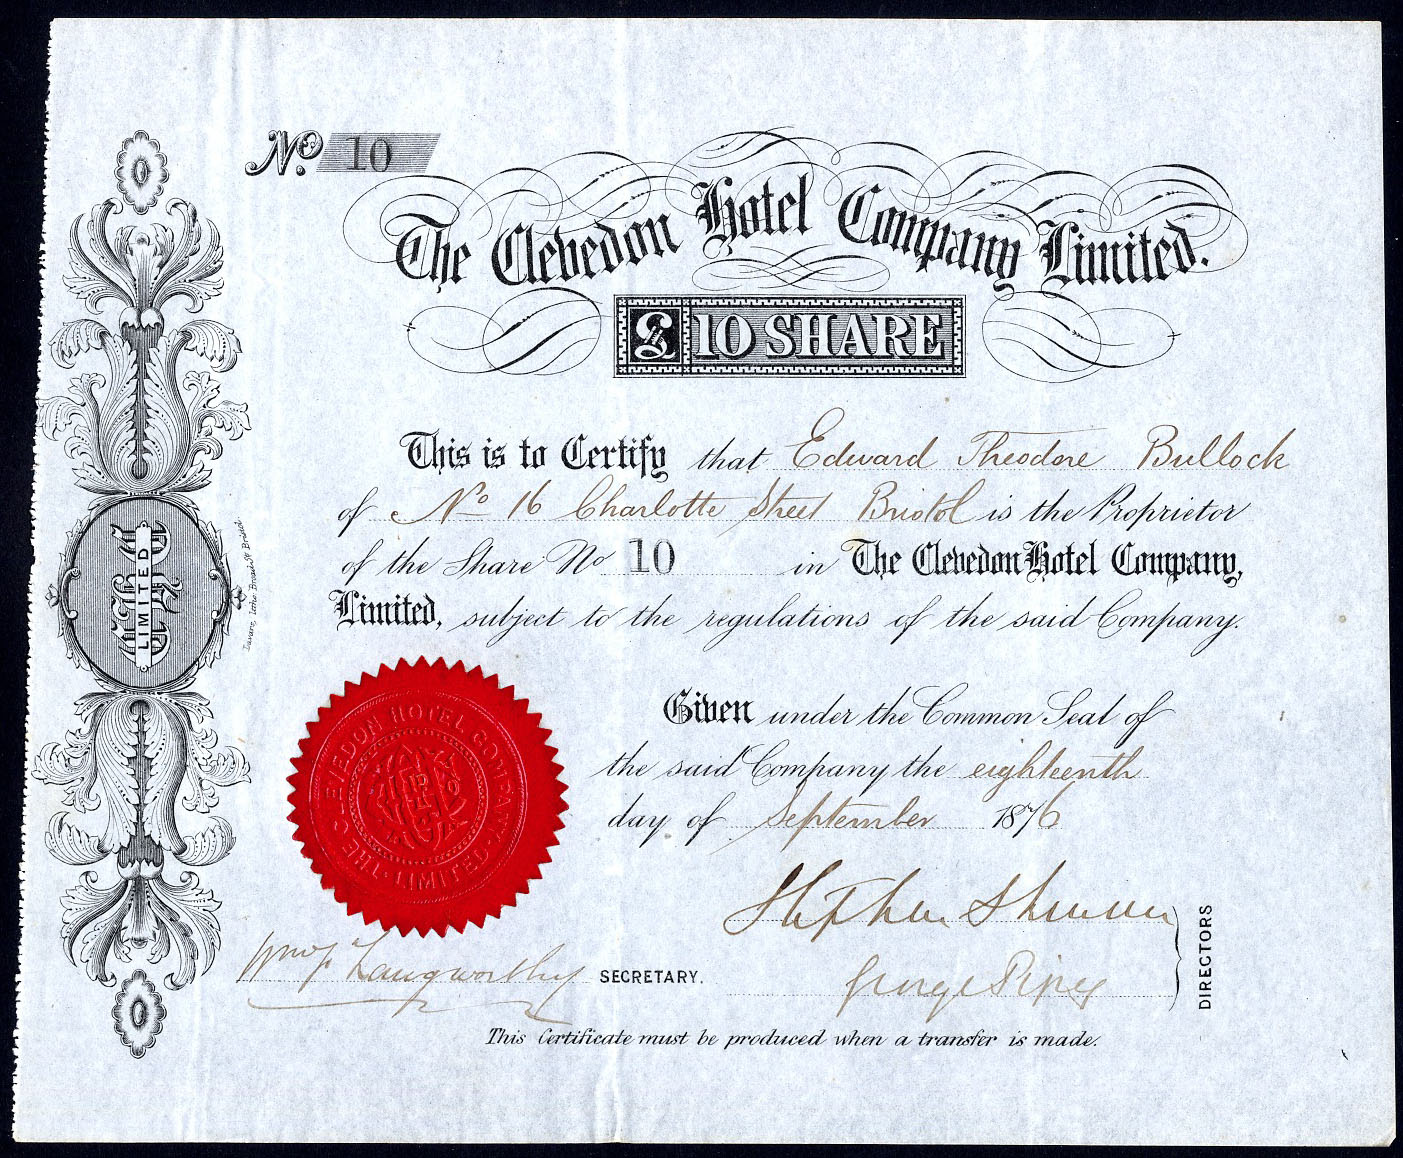 No. 10
The Clevedon Hotel Company Limited.
£10 SHARE
This is to Certify that Edward Theodore Bullock
of No 16 Charlotte Street Bristol is the Proprietor
of the Share No 10 in The Clevedon Hotel Company,
Limited, subject to the regulations of the said Company.
Given under the Common Seal of
the said Company the eighteenth
day of September 1876
Stephen
George
DIRECTORS
Wm F Langworthy SECRETARY.
This Certificate must be produced when a transfer is made.
LIMITED
Lavars, Litho Broad St Bristol.
THE CLEVEDON HOTEL COMPANY LIMITED